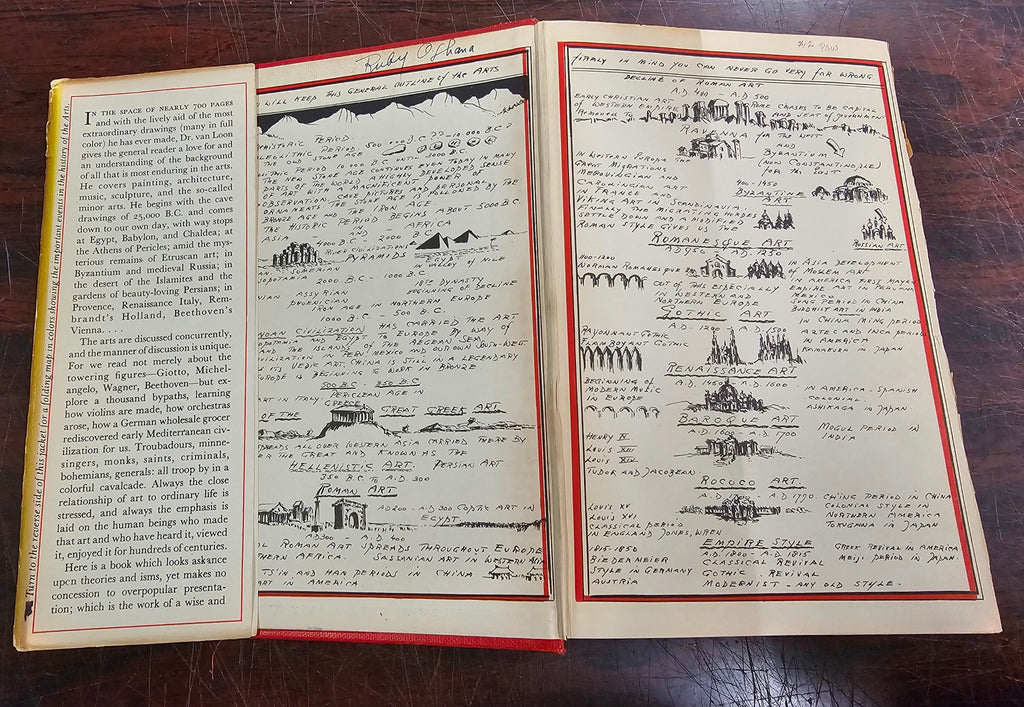 Turn to the reverse side of this jacket for a folding map in colors showing the important events in the history of the Arts.
IN THE SPACE OF NEARLY 700 PAGES
and with the lively aid of the most
extraordinary drawings (many in full
color) he has ever made, Dr. van Loon
gives the general reader a love for and
an understanding of the background
of all that is most enduring in the arts.
He covers painting, architecture,
music, sculpture, and the so-called
minor arts. He begins with the cave
drawings of 25,000 B.C. and comes
down to our own day, with way stops
at Egypt, Babylon, and Chaldea; at
the Athens of Pericles; amid the mys-
terious remains of Etruscan art; in
Byzantium and medieval Russia; in
the desert of the Islamites and the
gardens of beauty-loving Persians; in
Provence, Renaissance Italy, Rem-
brandt's Holland, Beethoven's
Vienna. . . .
The arts are discussed concurrently,
and the manner of discussion is unique.
For we read not merely about the
towering figures—Giotto, Michel-
angelo, Wagner, Beethoven—but ex-
plore a thousand bypaths, learning
how violins are made, how orchestras
arose, how a German wholesale grocer
rediscovered early Mediterranean civ-
ilization for us. Troubadours, minne-
singers, monks, saints, criminals,
bohemians, generals: all troop by in a
colorful cavalcade. Always the close
relationship of art to ordinary life is
stressed, and always the emphasis is
laid on the human beings who made
that art and who have heard it, viewed
it, enjoyed it for hundreds of centuries.
Here is a book which looks askance
upon theories and isms, yet makes no
concession to overpopular presenta-
tion; which is the work of a wise and
Ruby
WILL KEEP THIS GENERAL OUTLINE OF THE ARTS
HISTORIC PERIOD. 500.000 B.C. ??-10.000 B.C.?
THE OLD STONE AGE
10.000 B.C. UNTIL 3000 B.C.
THE NEW STONE AGE CONTINUED EVEN TODAY IN MANY
PARTS OF THE WORLD A HIGHLY DEVELOPED SENSE
OF ART WITH A MAGNIFICENT POWER OF
OBSERVATION. CARE PICTURES AND PERSONAL
ORNAMENTS. THE STONE AGE IS FOLLOWED BY THE
BRONZE AGE AND THE IRON AGE
THE HISTORIC PERIOD BEGINS ABOUT 5000 B.C.
ASIA AND - AFRICA
4000 B.C. - 2000 B.C.
RIVER CIVILISATIONS EGYPT
PYRAMIDS VALLEY OF NILE
SUMERIAN
2000 B.C. - 1000 B.C.
ASSYRIAN 18TH DYNASTY
PHOENICIAN BEGINNING OF DECLINE
IRON AGE IN NORTHERN EUROPE
1000 B.C. - 500 B.C.
CIVILIZATION HAS CARRIED THE ART
TO EUROPE BY WAY OF
AND THE ISLANDS OF THE AEGEAN SEA
IN PERU MEXICO AND OUR OWN SOUTH-WEST
ITS VEDIC ART, CHINA STILL IN A LEGENDARY
EUROPE IS BEGINNING TO WORK IN BRONZE
500 B.C. - 350 B.C.
ART IN ITALY PERICLEAN AGE IN
GREECE
OF THE GREAT GREEK ART
SPREADS ALL OVER WESTERN ASIA CARRIED THERE BY
THE GREAT AND KNOWN AS THE
HELLENISTIC ART. PERSIAN ART
350 B.C. TO A.D. 300
ROMAN ART
A.D. 200 - A.D. 300 COPTIC ART IN
EGYPT
A.D. 300 - A.D. 400
ROMAN ART SPREADS THROUGHOUT EUROPE
NORTHERN AFRICA. SASSANIAN ART IN WESTERN ASIA
TS'IN AND HAN PERIODS IN CHINA
ART IN AMERICA.
FIRMLY IN MIND YOU CAN NEVER GO VERY FAR WRONG.
DECLINE OF ROMAN ART
A.D. 400 - A.D. 500
EARLY CHRISTIAN ART
OF WESTERN EMPIRE ROME CEASES TO BE CAPITOL
REMOVED TO AND SEAT OF GOVERNMENT
RAVENNA FOR THE WEST
AND
BYZANTIUM
(NOW CONSTANTINOPLE)
FOR THE EAST
IN WESTERN EUROPE THE
GREAT MIGRATIONS
MEROVINGIAN AND
CAROLINGIAN ART
IN FRANCE AND
400-1450
BYZANTINE
ART
VIKING ART IN SCANDINAVIA
FINALLY THE MIGRATING HORDES
SETTLE DOWN AND A MODIFIED
ROMAN STYLE GIVES US THE
RUSSIAN ART
ROMANESQUE ART
A.D. 950 A.D. 1250
NORMAN ROMANESQUE
IN ASIA DEVELOPMENT
OF MOSLEM ART
IN AMERICA FIRST MAYAN
EMPIRE ART IN PERU AND
MEXICO
SUNG PERIOD IN CHINA
BUDDHIST ART IN INDIA
OUT OF THIS ESPECIALLY
IN WESTERN AND
NORTHERN EUROPE
GOTHIC ART
A.D. 1200 - A.D. 1500
RAYONNANT GOTHIC
FLAMBOYANT GOTHIC
IN CHINA MING PERIOD
AZTEC AND INCA PERIOD
IN AMERICA
KAMAKURA IN JAPAN
RENAISSANCE ART
A.D. 1450 A.D. 1600
BEGINNING OF
MODERN MUSIC
IN EUROPE
IN AMERICA - SPANISH
COLONIAL.
ASHIKAGA IN JAPAN
BAROQUE ART
A.D. 1600 - A.D. 1700
MOGUL PERIOD IN
INDIA
HENRY IV
LOUIS XIII
LOUIS XIV
TUDOR AND JACOBEAN
ROCOCO ART
A.D. 1700 A.D. 1790.
CH'ING PERIOD IN CHINA
COLONIAL STYLE IN
NORTHERN AMERICA
TOKUGAWA IN JAPAN
LOUIS XV
LOUIS XVI
CLASSICAL PERIOD
IN ENGLAND JONES, WREN
EMPIRE STYLE
A.D. 1800 - A.D. 1815
GREEK REVIVAL IN AMERICA
MEIJI PERIOD IN JAPAN
1815-1850
BIEDERMEIER
STYLE IN GERMANY
AUSTRIA
CLASSICAL REVIVAL
GOTHIC REVIVAL
MODERNIST - ANY OLD STYLE.